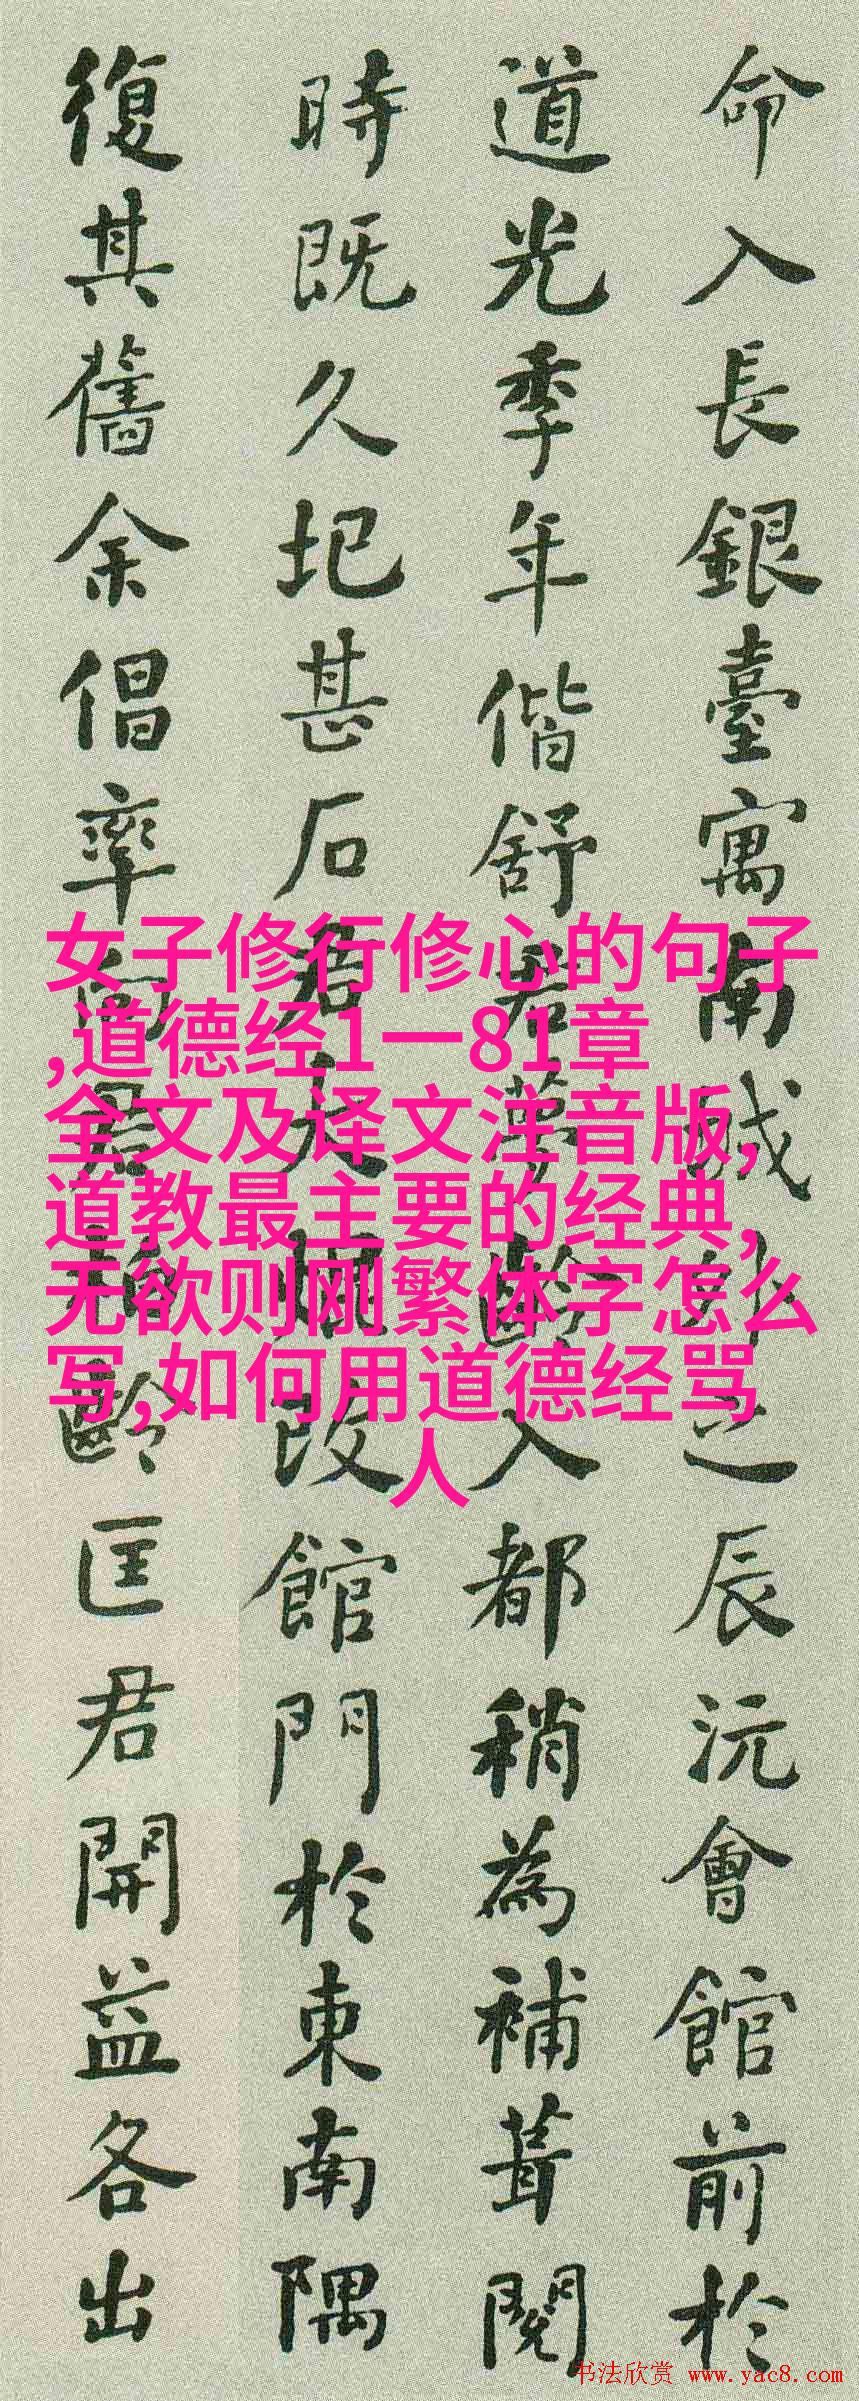 命入長銀臺寓南城外之辰沅會館前於
道光季年偕舒君夢齡入都稍為補葺閱
時既久圯甚石君大改館門於東南隅
復其舊余倡率向君齡匡君開益各出
女子修行修心的句子
,道德经1一81章
全文及译文注音版,
道教最主要的经典,
无欲则刚繁体字怎么
写,如何用道德经骂
人
书法欣赏 www.yac8.com